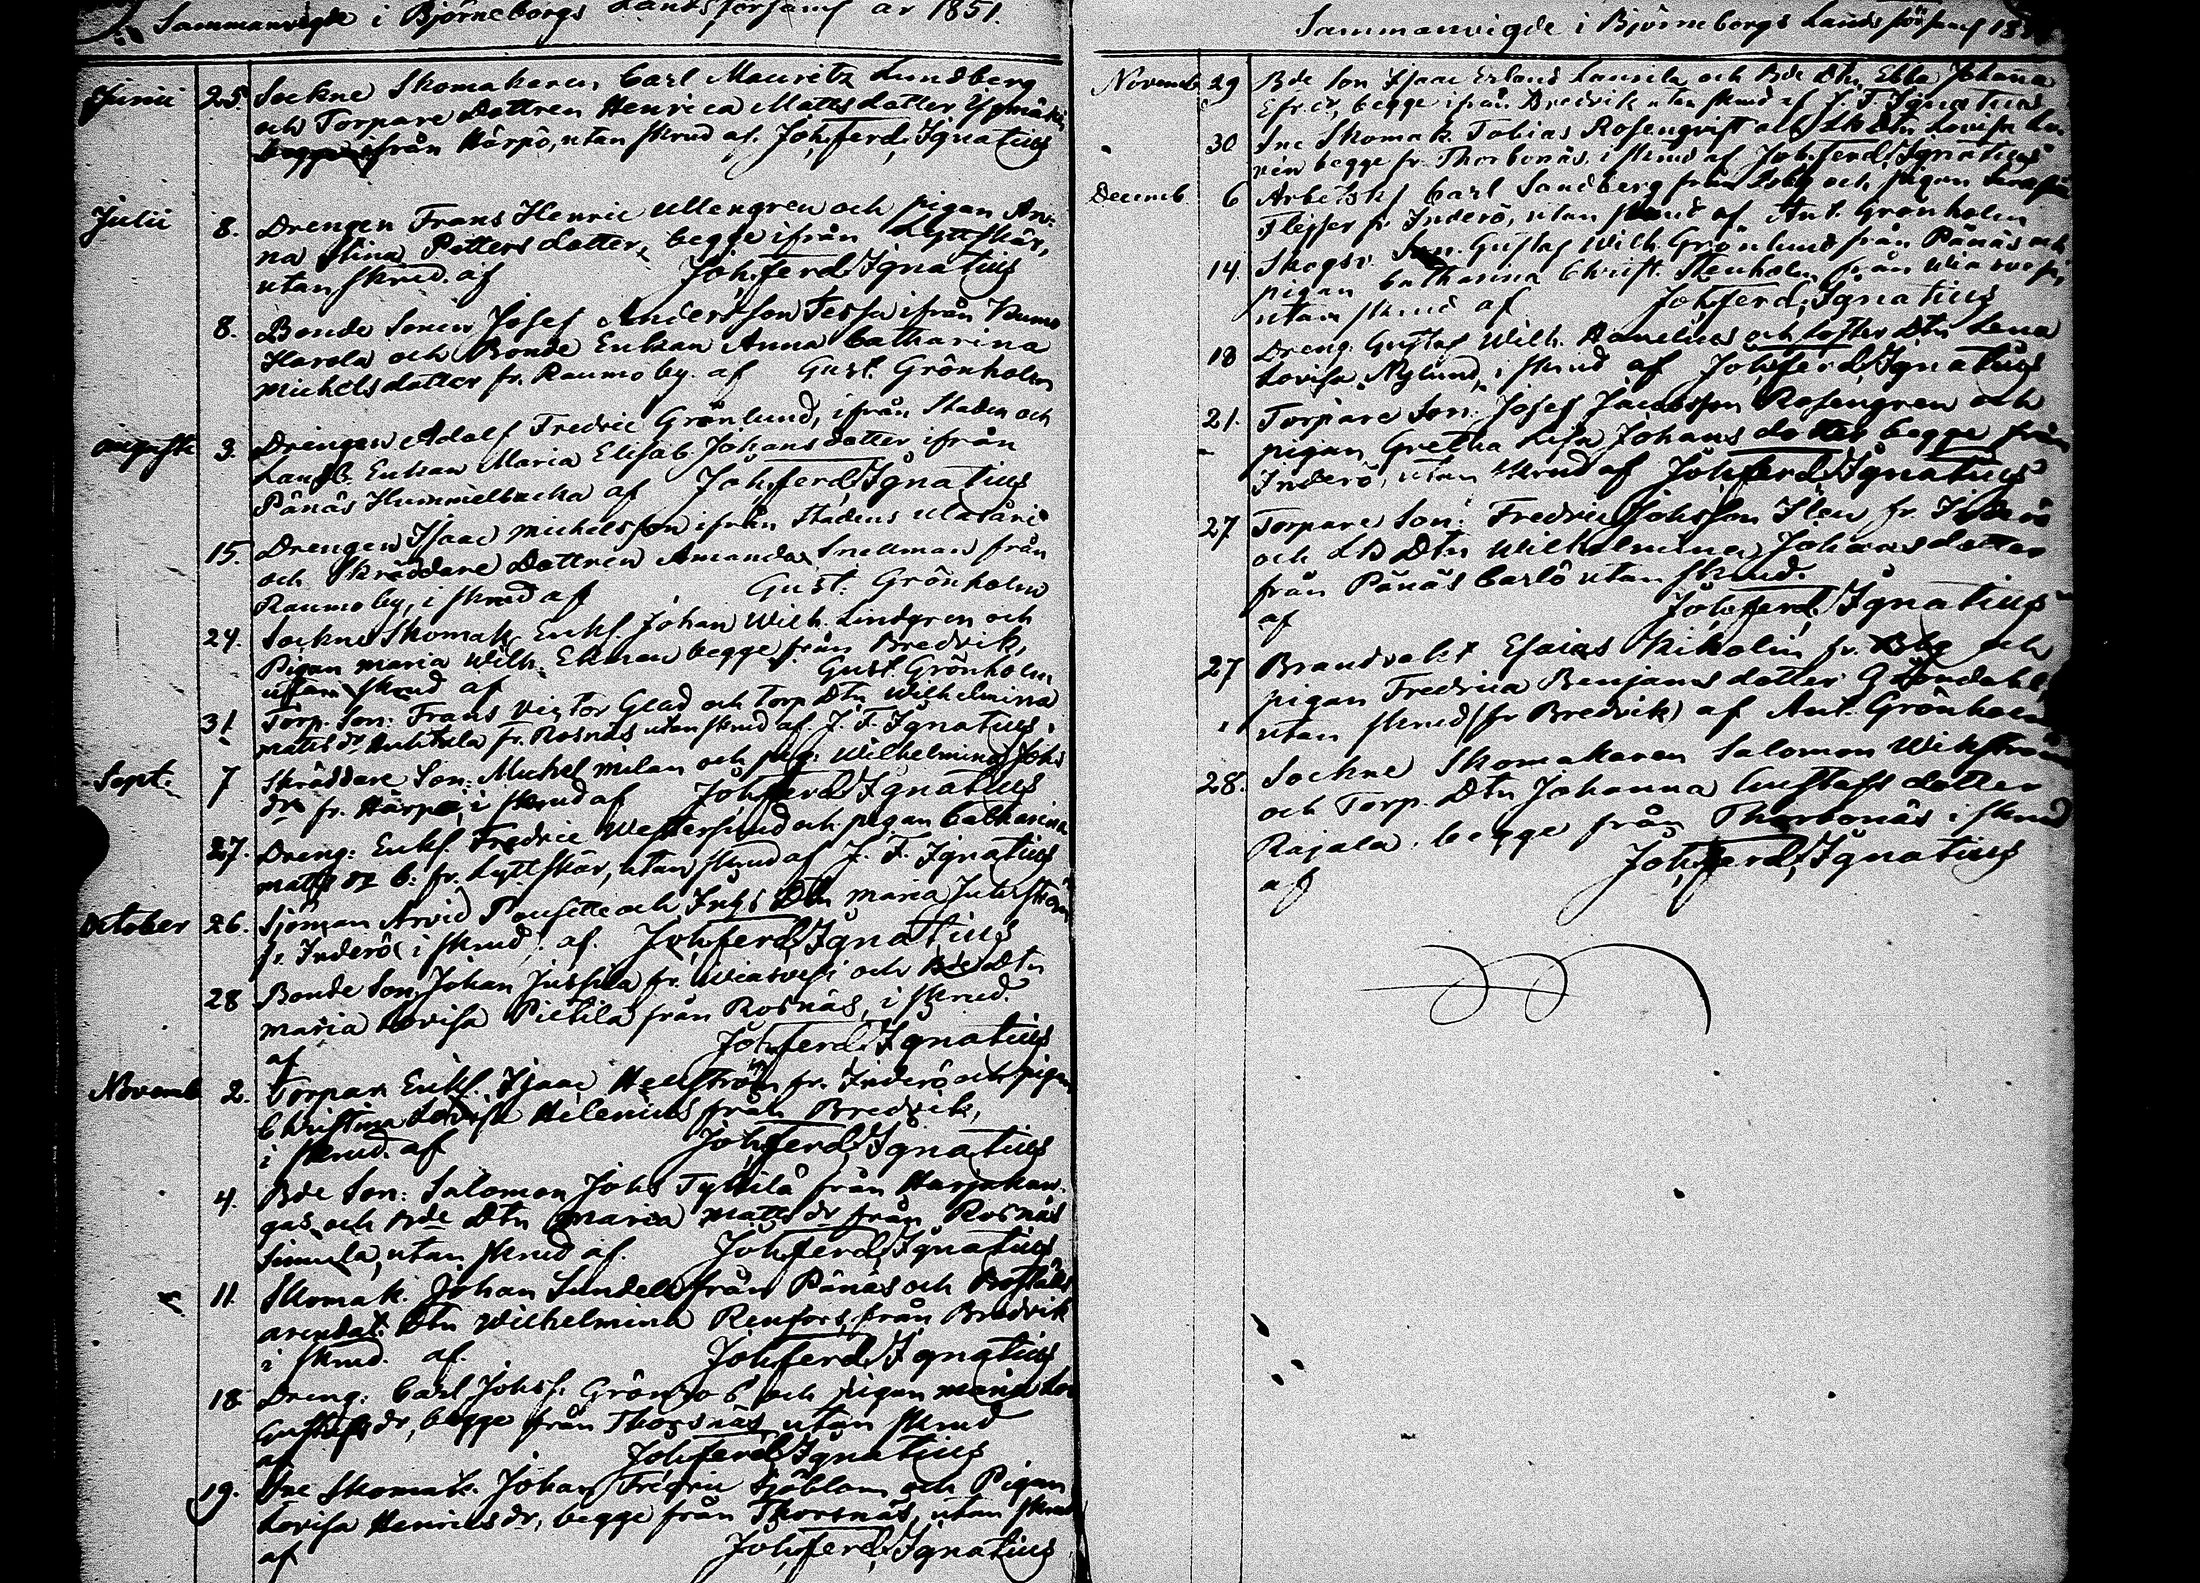 Sammanvigde i Björneborgs Landsförsaml år 1851.
Junii 25. Sockne Skomakaren Carl Mauritz Lundberg
och Torpare Dottren Henrica Matts dotter
begge ifrån Härpö, utan skrud af. Joh. Ferd. Ignatius
Julii 8. Drengen Frans Henric Ullengren och pigan An-
na Stina Petters dotter, begge ifrån Lyttskär,
utan skrud. af Joh. Ferd. Ignatius
8. Bonde Sonen Josef Andersson Tessa ifrån Kumo
Harola och Bonde Enkan Anna Catharina
Michelsdotter fr. Raumo by. af Gust. Grönholm
Augusti 3. Drengen Adolf Fredric Grönlund, ifrån Staden och
Landb. Enkan Maria Elisab. Johansdotter ifrån
Pänäs Hummelbacka af Joh. Ferd. Ignatius
15. Drengen Isaac Michelsson ifrån Stadens Ulasöri
och Skräddare Dottren Amanda Snellman från
Raumo by, i skrud af Gust. Grönholm
24. Sockne Skomak. Enkl. Johan Wilh. Lindgren och
Pigan Maria Wilh. Ekman begge från Bredvik,
utan skrud af Gust. Grönholm
31. Torp. Son: Frans Victor Glad och Torp Dtn Wilhelmina
Matts dr Anttila fr. Rosnäs utan skrud af J. F. Ignatius.
Sept: 7 Skräddare Son: Michel Milan och pig: Wilhelmina Johs
dr fr. Härpö, i skrud af Joh. Ferd. Ignatius
27. Dreng: Enkl. Fredric Westerlund och pigan Catharina
Matts dr b: fr. Lyttskär, utan skrud af J. F. Ignatius
October 26. Sjöman Arvid Tousette och Inhs Dtn Maria
fr. Inderö i skrud. af. Joh. Ferd. Ignatius
28 Bonde Son Johan Jussila fr. Wiasvesi och Bde Dtn
Maria Lovisa Pietilä från Rosnäs, i skrud.
af Joh. Ferd. Ignatius
Novemb 2. Torpar. Enkl. Isaac Hellström fr. Inderö och pigan
Christina Lovisa Hilenius från Bredvik,
i skrud. af Joh. Ferd. Ignatius
4. Bde Son: Salomon Johs Tyltilä från Harjakan-
gas och Bde Dtn Maria Matts dr från Rosnäs
Simula, utan skrud af. Joh. Ferd. Ignatius
11. Skomak. Johan Sundell från Pänäs och Boställs
arendat. Dtn Wilhelmina Renfors, från Bredvik
i skrud. af. Joh. Ferd. Ignatius
18 Dreng: Carl Johss. Grönroos och pigan Maria Lov
Gustafs dr, begge från Thorsnäs utan skrud
af Joh. Ferd. Ignatius
19. Ine Skomak. Johan Fredric Sjöblom och Pigan
Lovisa Henrics dr, begge från Thorsnäs, utan skrud
af Joh. Ferd. Ignatius
Sammanvigde i Björneborgs Landsförsaml
Novemb 29 Bde Son Isaac Erland Laurila och Bde Dtn Ebba Johanna
Efr. dr, begge ifrån Bredvik utan skrud af J. F. Ignatius
30 Ine Skomak. Tobias Rosenqvist och Dtn Lovisa
begge fr. Thorbonäs. i skrud af Joh. Ferd. Ignatius
Decemb 6 Arbetsk. Carl Sandberg från och pigan
fr Inderö, utan skrud af Ant. Grönholm
14. Skogsv. Son. Gustaf Wilh. Grönlund från Pänäs och
pigan Catharina Christ. Stenholm från Wiasvesi,
utan skrud af Joh. Ferd. Ignatius
18 Dreng. Gustaf Wilh. Hamelius och Dtn Lena
Lovisa Nylund, i skrud af Joh. Ferd. Ignatius
21. Torpare Son: Josef Jacobsson Rosengren och
pigan Gretha Lisa Johans dotter begge från
Inderö, utan skrud af Joh. Ferd. Ignatius
27 Torpare Son: Fredric Johsson Ilen fr. Inderö
och LB Dtn Wilhelmina Johans dotter
från Pänäs Carlö utan skrud.
af Joh. Ferd. Ignatius
27 Brandvakt Esaias Kikolin fr. Bbg och
pigan Fredrica Benjams dotter Gröndahl
utan skrud (fr Bredvik) af Ant. Grönholm
28. Sockne Skomakaren Salomon Wikström
och Torp. Dtn Johanna Gustafs dotter
Rajala, begge från Thorbonäs i skrud
af Joh. Ferd. Ignatius